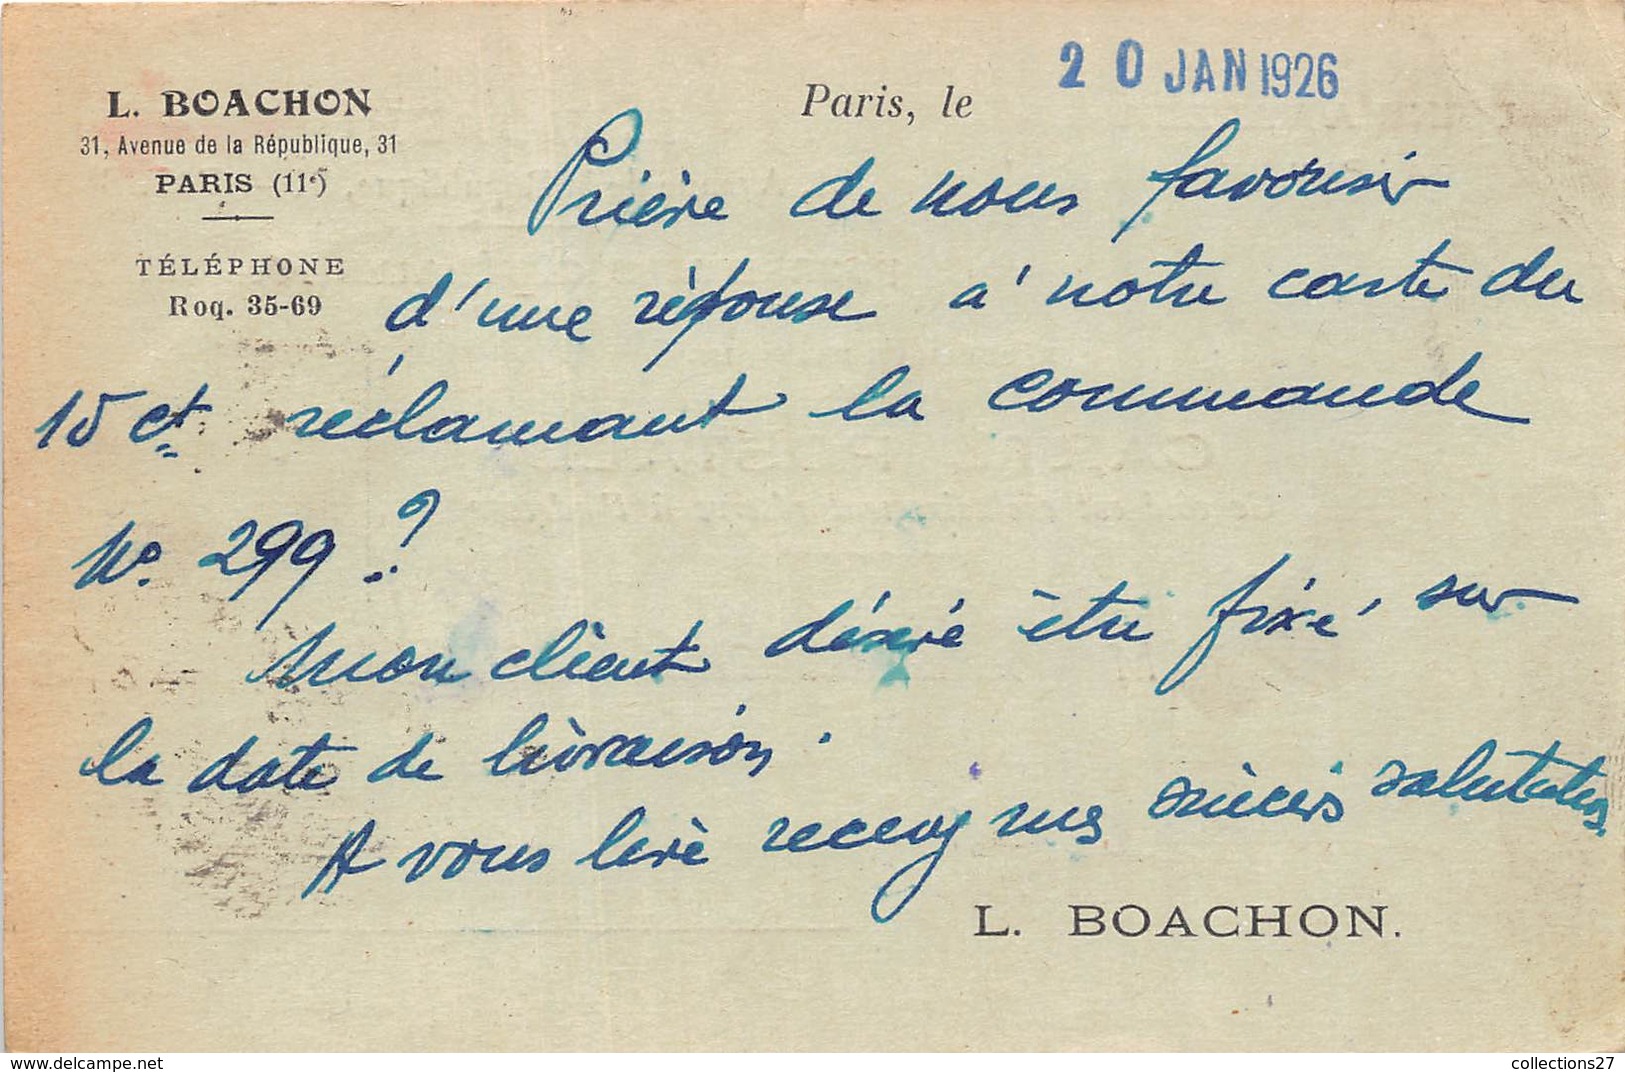 L. BOACHON
31, Avenue de la République, 31
PARIS (11e)
TÉLÉPHONE
Roq. 35-69
Paris, le 20 JAN 1926
Prière de nous favoriser
d'une réponse à notre carte du
15 ct réclamant la commande
No. 299?
Mon client désire être fixé sur
la date de livraison.
A vous lire recevez mes sincères salutations
L. BOACHON.
www.delcampe.net
collections27